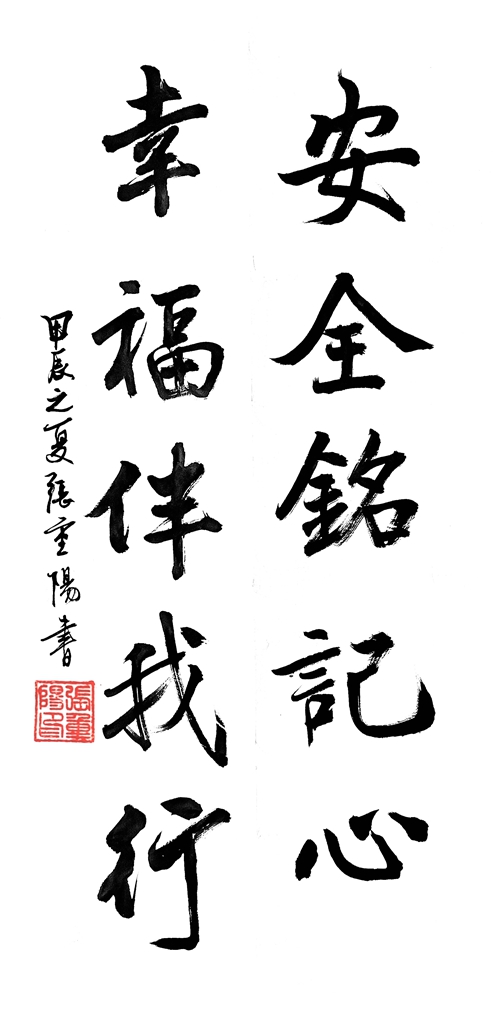 安全銘記心
幸福伴我行
甲辰之夏張重陽書
張重
陽印